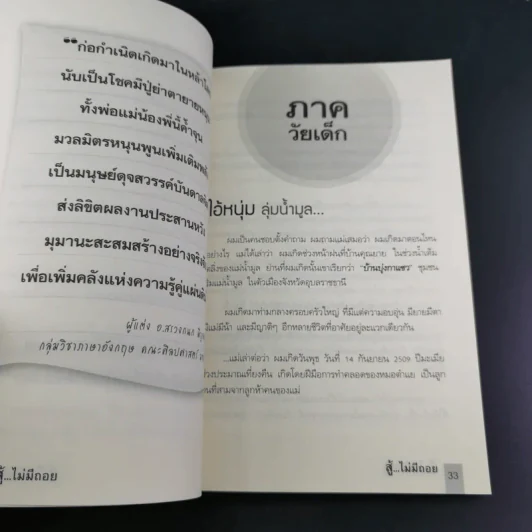 ❝ก่อกำเนิดเกิดมาในหล้า
นับเป็นโชคมีปู่ย่าตายาย
ทั้งพ่อแม่น้องพี่นี้ค้ำจุน
มวลมิตรหนุนพูนเพิ่มเติม
เป็นมนุษย์ดุจสวรรค์บันดาล
ส่งลิขิตผลงานประสาน
มุมานะสะสมสร้างอย่างจริง
เพื่อเพิ่มคลังแห่งความรู้คู่แผ่น
ผู้แต่ง
กลุ่มวิชาภาษาอังกฤษ คณะศิลปศาสตร์
สู้...ไม่มีถอย
ภาค
วัยเด็ก
ไอ้หนุ่ม ลุ่มน้ำมูล...
ผมเป็นคนชอบตั้งคำถาม ผมถามแม่เสมอว่า ผมเกิดมาตอนไหน
อย่างไร แม่ได้เล่าว่า ผมเกิดช่วงหน้าฝนที่บ้านคุณยาย ในช่วงน้ำเต็ม
ตลิ่งของแม่น้ำมูล ย่านที่ผมเกิดนั้นเขาเรียกว่า "บ้านบุ่งกาแซว" ชุมชน
แม่น้ำมูล ในตัวเมืองจังหวัดอุบลราชธานี
ผมเกิดมาท่ามกลางครอบครัวใหญ่ ที่มีแต่ความอบอุ่น มียายมีตา
มีแม่มีน้า และมีญาติๆ อีกหลายชีวิตที่อาศัยอยู่ละแวกเดียวกัน
...แม่เล่าต่อว่า ผมเกิดวันพุธ วันที่ 14 กันยายน 2509 ปีมะเมีย
ช่วงประมาณเที่ยงคืน เกิดโดยฝีมือการทำคลอดของหมอตำแย เป็นลูก
คนที่สามจากลูกห้าคนของแม่
สู้...ไม่มีถอย 33